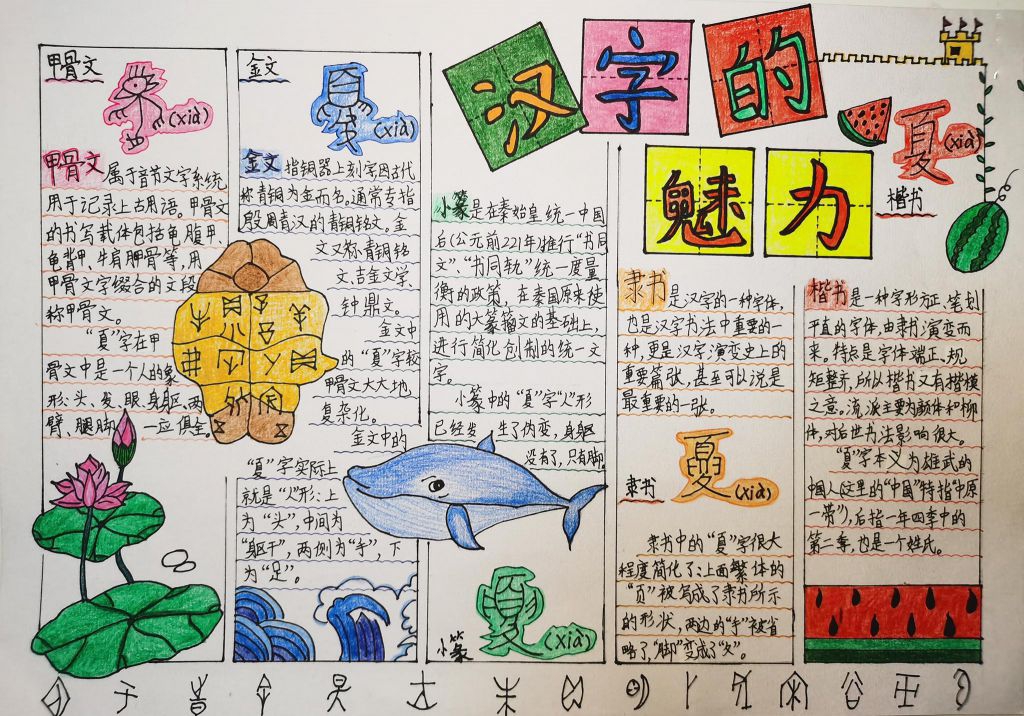 汉字的
魅力
甲骨文
(xià)
甲骨文属于音节文字系统,
用于记录上古用语。甲骨文
的书写载体包括龟腹甲、
龟背甲、牛肩胛骨等,用
甲骨文字缀合的文段
称甲骨文。
“夏”字在甲
骨文中是一个人的象
形:头、发、眼、身躯、两
臂、腿脚、一应俱全。
金文
(xià)
金文指铜器上刻字因古代
称青铜为金而名。通常专指
殷周青汉的青铜铭文。金
文又称青铜铭
文、吉金文字、
钟鼎文。
金文中
的“夏”字较
甲骨文大大地
复杂化。
金文中的
“夏”字实际上
就是“人”形:上
为“头”,中间为
“躯干”,两侧为“手”,下
为“足”。
小篆是在秦始皇统一中国
后(公元前221年)推行“书同
文”、“书同轨”统一度量
衡的政策,在秦国原来使
用的大篆籀文的基础上,
进行简化创制的统一文
字。
小篆中的“夏”字“人”形
已经发生了伪变,身躯
没有了,只有脚。
夏(xià)
小篆
隶书是汉字的一种字体,
也是汉字书法中重要的一
种,更是汉字演变史上的
重要篇张,甚至可以说是
最重要的一张。
隶书
夏(xià)
隶书中的“夏”字很大
程度简化了:上面繁体的
“页”被写成了隶书所示
的形状,两边的“手”被省
略了,“脚”变成了“夂”。
夏(xià)
楷书
楷书是一种字形方正、笔划
平直的字体,由隶书演变而
来。特点是字体端正、规
矩整齐,所以楷书又有楷模
之意。流派主要为颜体和柳
体,对后世书法影响很大。
“夏”字本义为雄武的
中国人(这里的“中国”特指“中原
一带”),后指一年四季中的
第二季,也是一个姓氏。